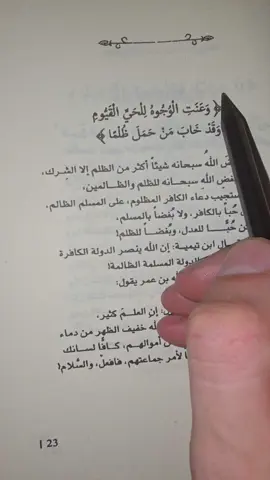 ﴿ وَعَنَتِ الْوُجُوهُ لِلْحَيِّ الْقَيُّومِ
وَقَدْ خَابَ مَنْ حَمَلَ ظُلْمًا ﴾
اللهُ سبحانه شيئاً أكثر من الظلم إلا الشرك،
الله سبحانه للظلم والظالمين،
دعاء الكافر المظلوم، على المسلم الظالم.
حُباً بالكافر، ولا بُغضاً بالمسلم،
حُبًّا للعدل، وبُغضاً للظلم!
ابن تيمية: إن الله ينصر الدولة الكافرة
الدولة المسلمة الظالمة!
بن عمر يقول:
إن العلم كثير،
خفيف الظهر من دماء
أموالهم، كافًّا لسانك
لأمر جماعتهم، فافعلْ، والسَّلام!
123